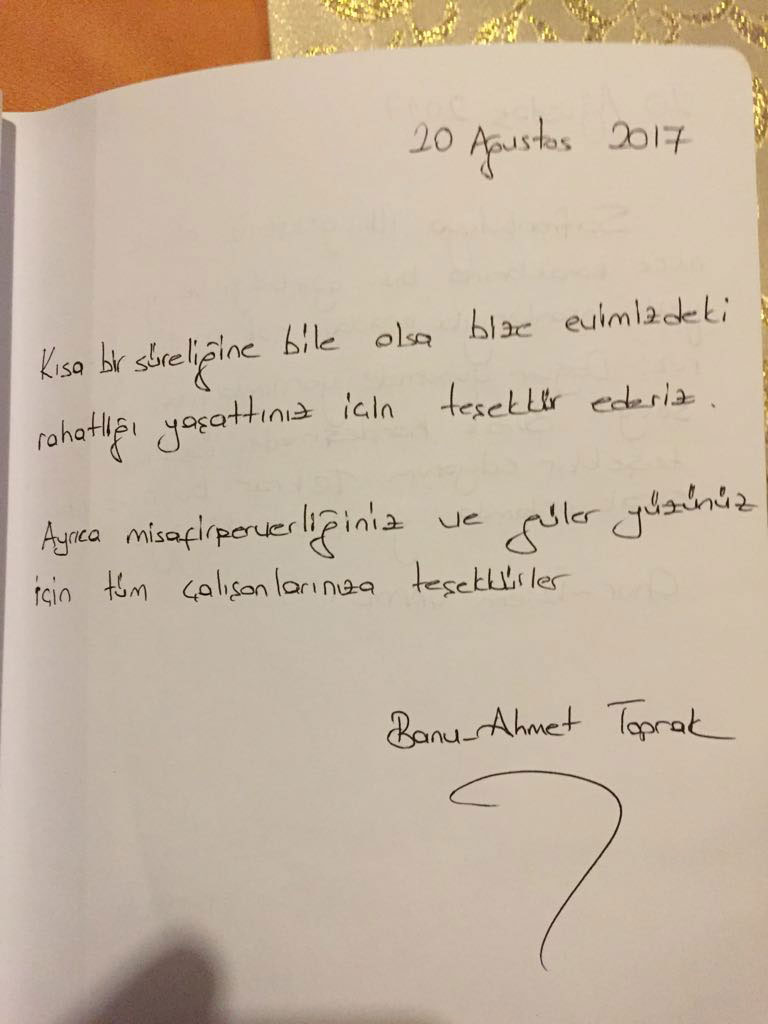 20 Ağustos 2017
Kısa bir süreliğine bile olsa bize evimizdeki
rahatlığı yaşattınız için teşekkür ederiz.
Ayrıca misafirperverliğiniz ve güler yüzünüz
için tüm çalışanlarınıza teşekkürler
Banu-Ahmet Toprak